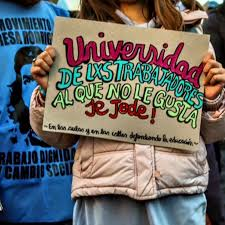 MOVIMIENTO
Universidad
DE LXS TRABAJADORES
AL QUE NO LE GUSTA
se jode!
~ En las aulas y en las calles defendiendo la educación ~
TRABAJO DIGNO
Y CAMBIO SOCIAL